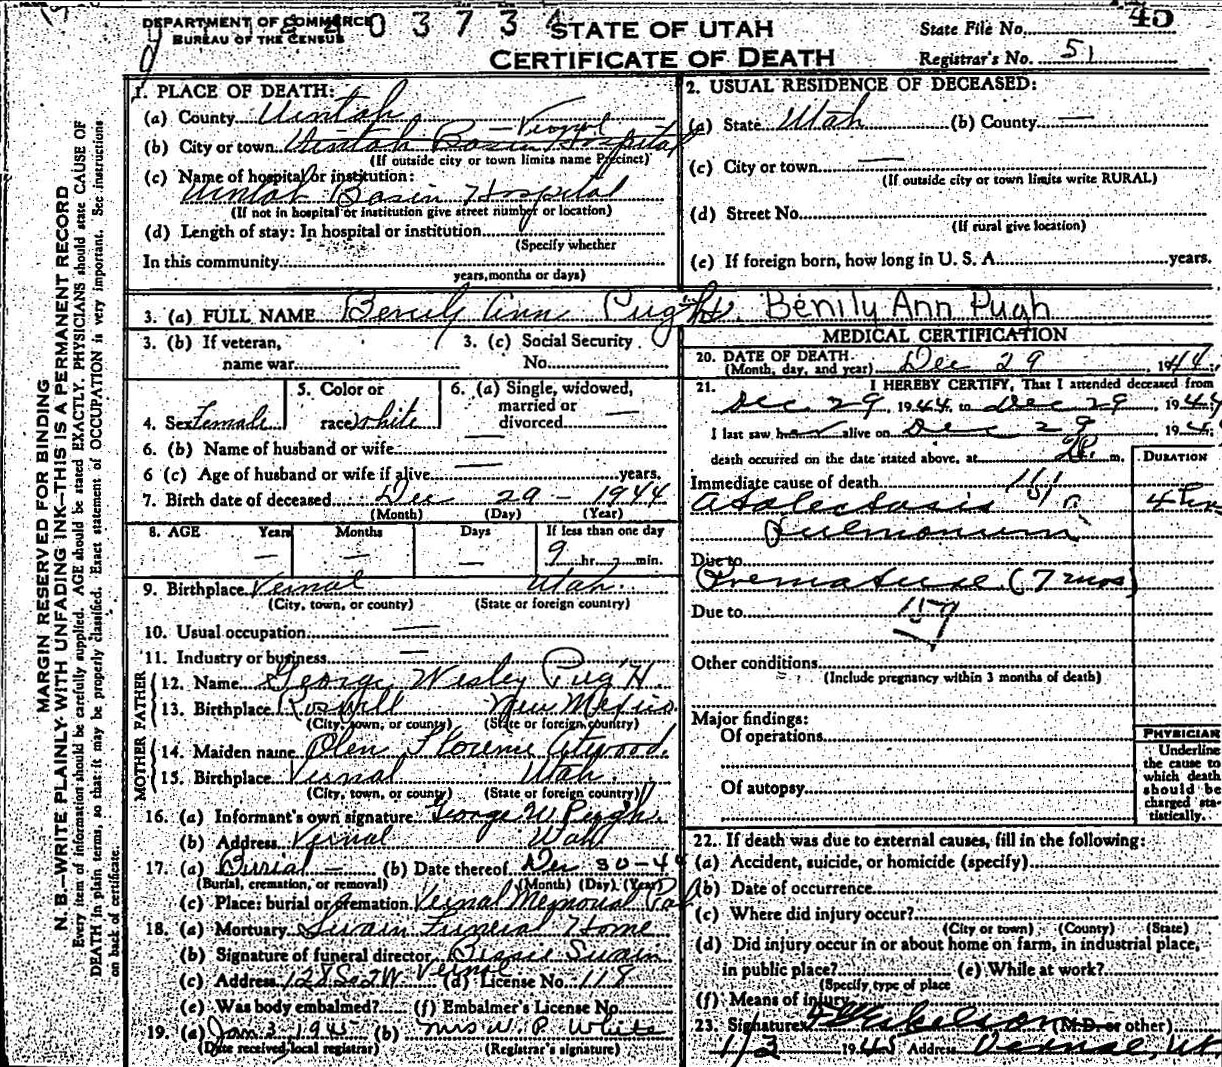 DEPARTMENT OF COMMERCE
BUREAU OF THE CENSUS
0 3 7 3 4
STATE OF UTAH
CERTIFICATE OF DEATH
45
State File No.
Registrar's No. 51
MARGIN RESERVED FOR BINDING
N. B.—WRITE PLAINLY WITH UNFADING INK—THIS IS A PERMANENT RECORD
Every item of information should be carefully supplied. AGE should be stated EXACTLY. PHYSICIANS should state CAUSE OF
DEATH in plain terms, so that it may be properly classified. Exact statement of OCCUPATION is very important. See instructions
on back of certificate.
1. PLACE OF DEATH:
(a) County Uintah
Vernal
(b) City or town Uintah Basin Hospital
(If outside city or town limits name Precinct)
(c) Name of hospital or institution:
Uintah Basin Hospital
(If not in hospital or institution give street number or location)
(d) Length of stay: In hospital or institution
(Specify whether
In this community
years, months or days)
2. USUAL RESIDENCE OF DECEASED:
(a) State Utah (b) County —
(c) City or town —
(If outside city or town limits write RURAL)
(d) Street No.
(If rural give location)
(e) If foreign born, how long in U. S. A. years.
3. (a) FULL NAME Benily Ann Pugh Benily Ann Pugh
3. (b) If veteran,
name war
3. (c) Social Security
No.
4. Sex Female
5. Color or
race White
6. (a) Single, widowed,
married or
divorced —
6. (b) Name of husband or wife —
6 (c) Age of husband or wife if alive — years.
7. Birth date of deceased Dec 29 - 1944
(Month) (Day) (Year)
8. AGE Years Months Days If less than one day
— — — 9 hr. min.
9. Birthplace Vernal Utah
(City, town, or county) (State or foreign country)
10. Usual occupation —
11. Industry or business —
FATHER
12. Name George Wesley Pugh
13. Birthplace Roswell New Mexico
(City, town, or county) (State or foreign country)
MOTHER
14. Maiden name Olen Florence Atwood
15. Birthplace Vernal Utah
(City, town, or county) (State or foreign country)
16. (a) Informant's own signature George W Pugh
(b) Address Vernal Utah
17. (a) Burial — (b) Date thereof Dec 30-44
(Burial, cremation, or removal) (Month) (Day) (Year)
(c) Place: burial or cremation Vernal Memorial Park
18. (a) Mortuary Swain Funeral Home
(b) Signature of funeral director Swain
(c) Address 128 So 2 W. Vernal (d) License No. 118
(e) Was body embalmed? (f) Embalmer's License No.
19. (a) Jan 3 1945 (b) Mrs W. P. White
(Date received local registrar) (Registrar's signature)
MEDICAL CERTIFICATION
20. DATE OF DEATH
(Month, day, and year) Dec 29, 1944
21. I HEREBY CERTIFY, That I attended deceased from
Dec 29, 1944 to Dec 29 1944
I last saw her alive on Dec 29, 194
death occurred on the date stated above, at m.
DURATION
Immediate cause of death 161
Atalectasis 4 hrs
Pulmonum
Due to
Premature (7 mos)
Due to 159
Other conditions
(Include pregnancy within 3 months of death)
Major findings:
Of operations
Of autopsy
PHYSICIAN
Underline
the cause to
which death
should be
charged sta-
tistically.
22. If death was due to external causes, fill in the following:
(a) Accident, suicide, or homicide (specify)
(b) Date of occurrence
(c) Where did injury occur?
(City or town) (County) (State)
(d) Did injury occur in or about home on farm, in industrial place,
in public place? (e) While at work?
(Specify type of place
(f) Means of injury
23. Signature (M.D. or other)
1/3 1945 Address Vernal, Ut